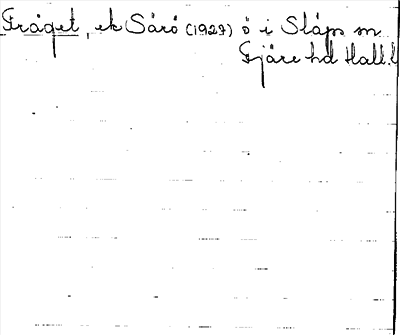 Fråget, ek Särö (1927) ö i Släps sn
Fjäre hd Hall.l